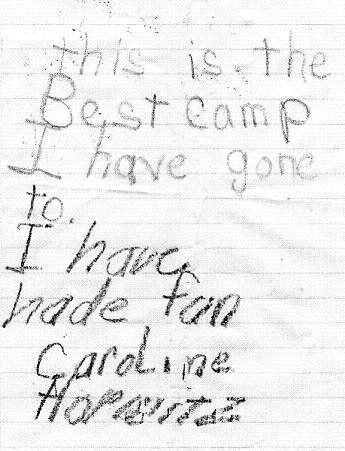 this is the
Best camp
I have gone
to.
I have
hade fan
Caroline